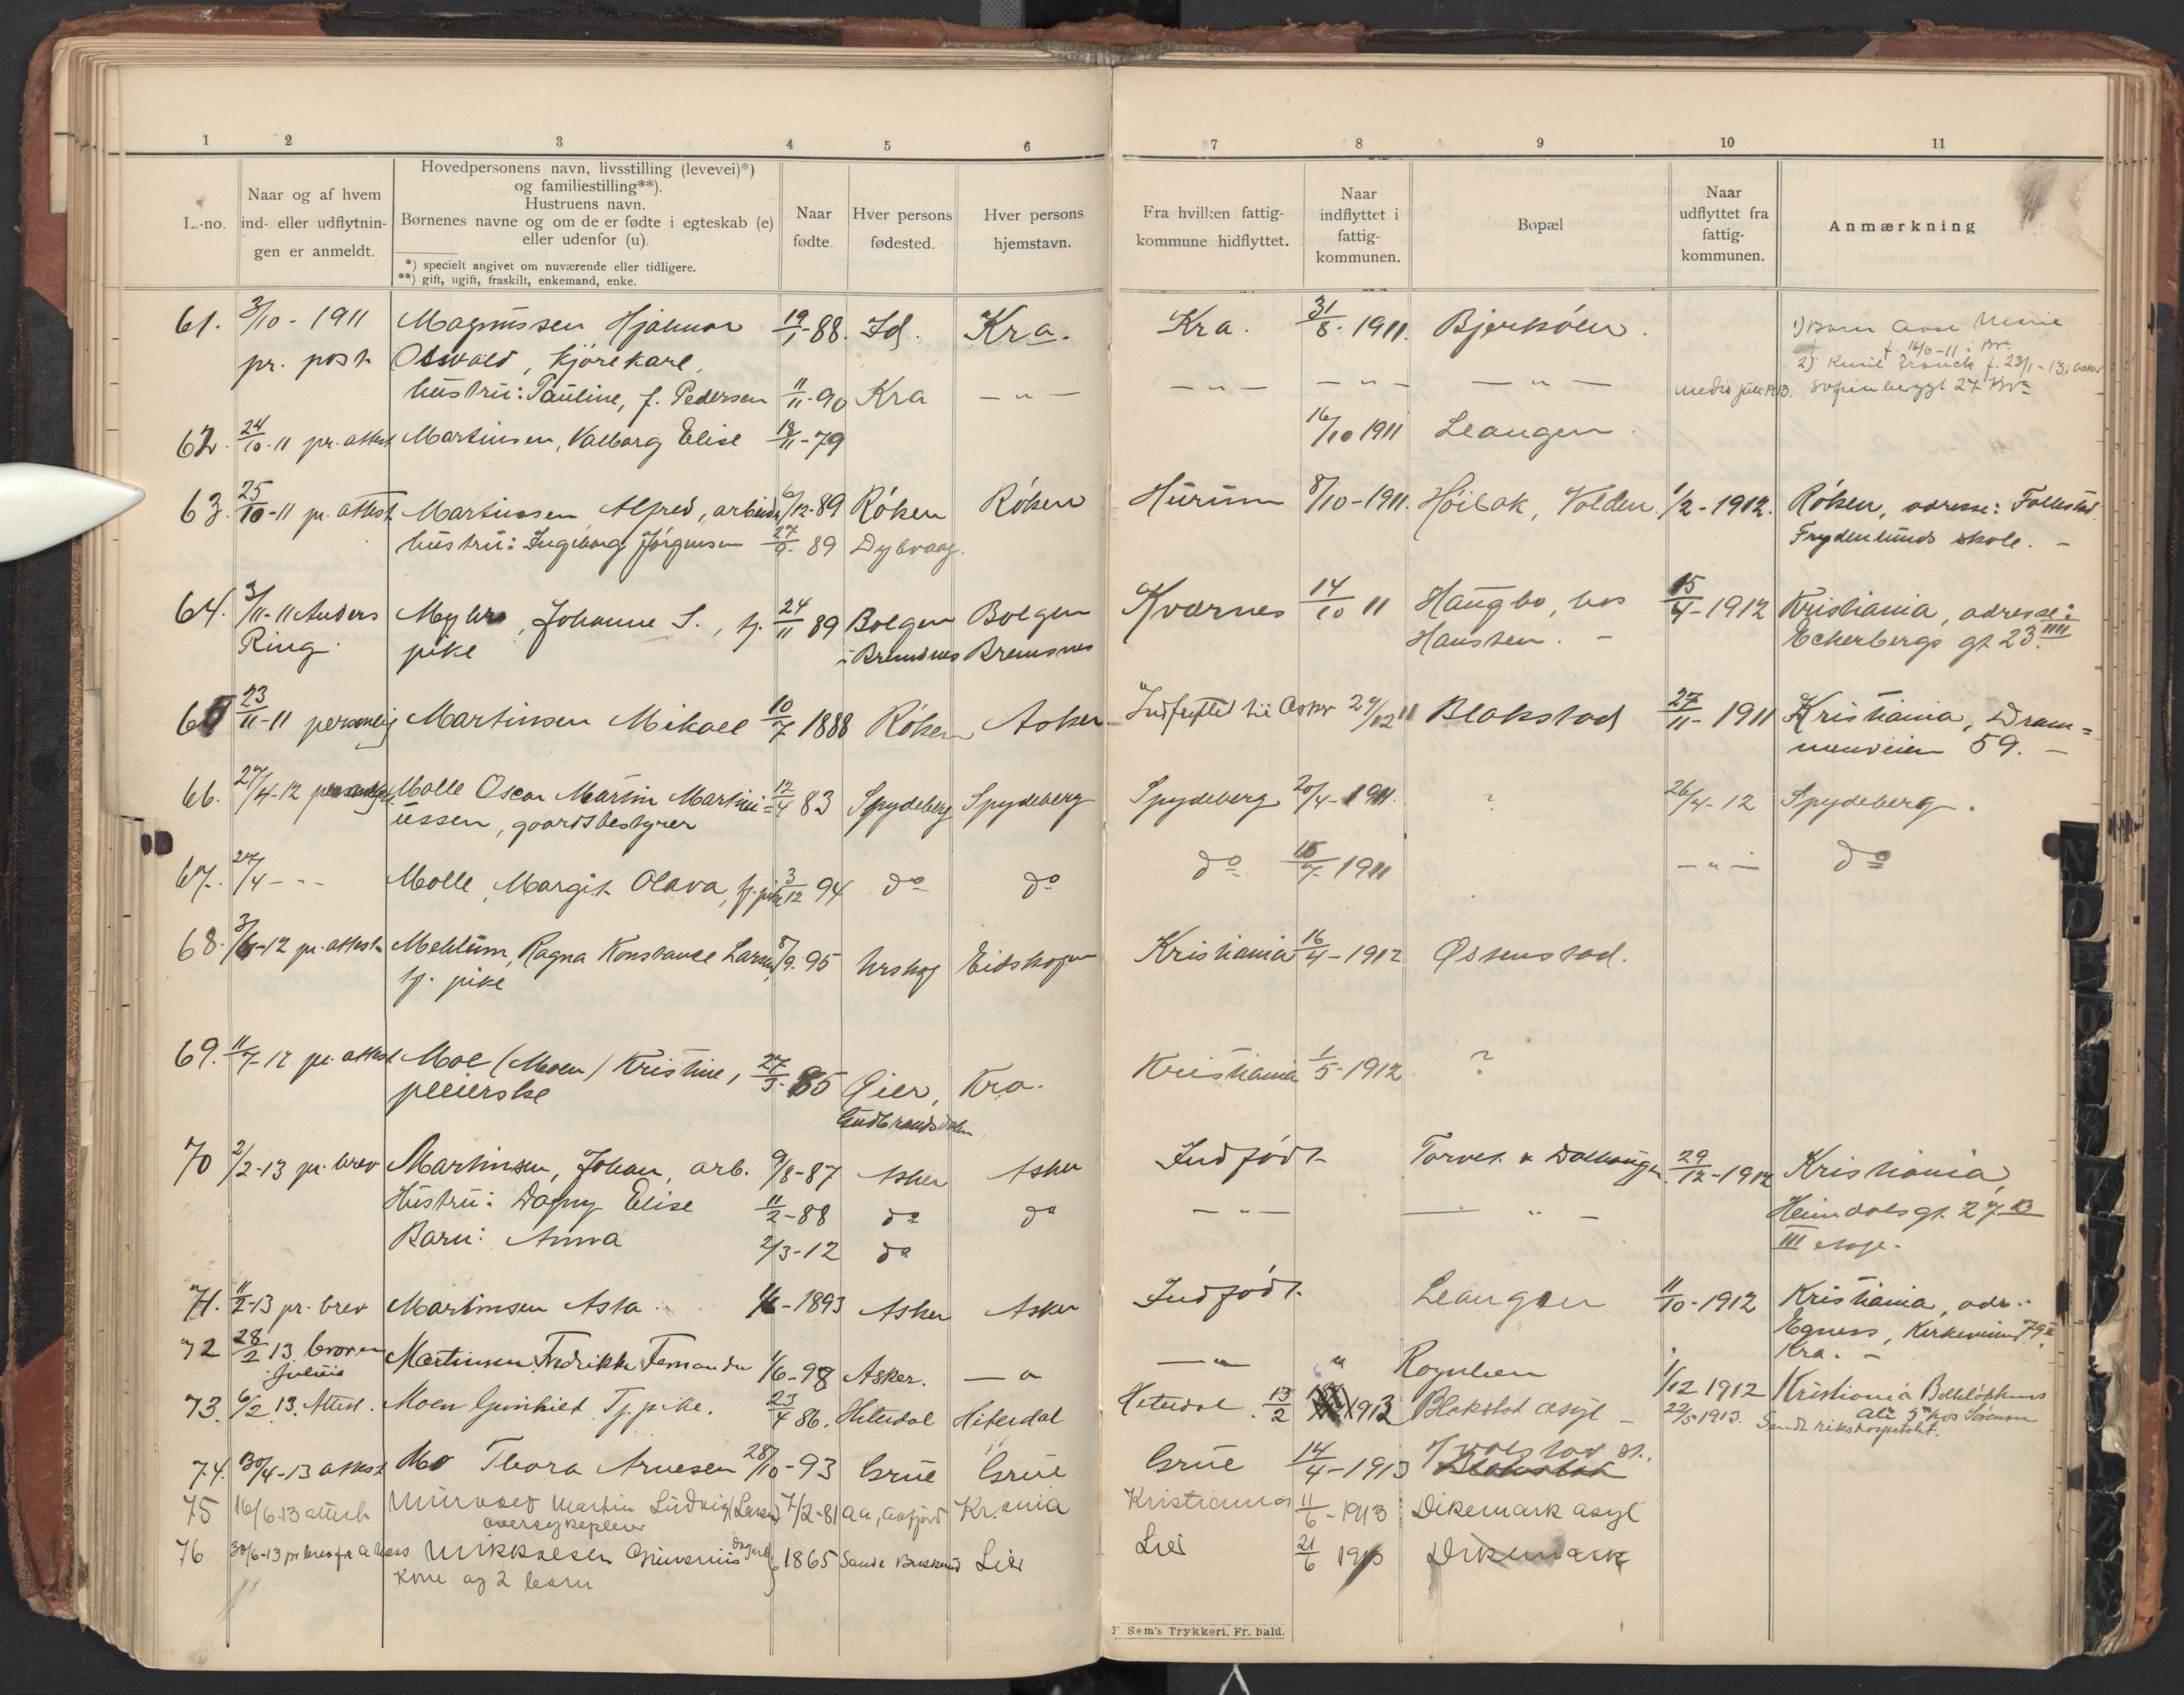 1 2 3 4 5 6 7 8 9 10 11
L.-no.
Naar og af hvem
ind- eller udflytnin-
gen er anmeldt.
Hovedpersonens navn, livsstilling (levevei)*)
og familiestilling**).
Hustruens navn.
Børnenes navne og om de er fødte i egteskab (e)
eller udenfor (u).
*) specielt angivet om nuværende eller tidligere.
**) gift, ugift, fraskilt, enkemand, enke.
Naar
fødte.
Hver persons
fødested.
Hver persons
hjemstavn.
Fra hvilken fattig-
kommune hidflyttet.
Naar
indflyttet i
fattig-
kommunen.
Bopæl
Naar
udflyttet fra
fattig-
kommunen.
Anmærkning
61. 3/10 - 1911 Magnussen Hjalmar 19/1-88. Id. Kra. Kra. 31/8-1911. Bjerkåsen. 1) Barn Aase Marie
pr. post Osvald, kjørekarl, f. 16/6-11 i Kra
2) Emil Franck f. 23/1-13 i Asker
hustru: Pauline, f. Pedersen 11/11-90 Kra — " — — " — — " — — " — medio juli 1913. Sofienberggt 27 Kra
62. 24/10-11 pr. attest Martinsen, Valborg Elise 18/11-79 16/10 1911 Leangen.
63. 25/10-11 pr. attest Martinssen Alfred, arbeider 6/12-89 Røken Røken Hurum 8/10-1911. Høibak, Volden. 1/2-1912. Røken, adresse: Follestad
hustru: Ingeborg Jørgensen 27/9-89 Dybvaag. Frydenlunds skole. -
64. 3/11-11 Anders Myhre, Johanne S., tj. 24/11 89 Bolgen Bolgen Kværnes 14/10 11 Haugbo, hos 15/4-1912 Kristiania, adresse:
Ring. pike i Bremsnes Bremsnes Hansten. - Eckerbergs gt 23 IIII
65 23/11-11 personlig Martinsen Mikael 10/7 1888 Røken Asker Indflyttet til Asker 29/12 11 Blakstad 27/11-1911 Kristiania, Dram=
mensveien 59. -
66. 27/4-12 Molle Oscar Martin Martini= 12/4 83 Spydeberg Spydeberg Spydeberg 20/4-1911. ? 26/4-12 Spydeberg.
ussen, gaardsbestyrer
67. 27/4 - - - Molle, Margit Olava, tj. pike 3/12 94 do do do 15/7 1911 — " — do
68. 3/6-12 pr. attest Mehlum, Ragna Konstance Larsen, 8/9-95 Urskog Eidskogen Kristiania 16/4-1912 Østenstad.
tj. pike
69. 11/7-12. pr. attest Moe (Moen) Kristine, 27/3-85 Øier, Kra. Kristiania 1/5-1912 ?
pleierske Gudbrandsdalen
70 2/2-13 pr. brev Martinsen, Johan, arb. 9/8-87 Asker Asker Indfødt Torvet. & Dalhaugen 29/12-1912 Kristiania,
Hustru: Dagny Elise 11/2-88 do do — " — — " — Heimdalsgt. 27 B
Barn: Anna 2/3-12 do III etage.
71. 11/2-13 pr. brev Martinsen Asta 1/6-1893 Asker Asker Indfødt. Leangen 11/10-1912 Kristiania, adr.:
Egness, Kirkeveien 79 II
Kra. -
72 28/2 13 broren Martinsen Fredrikke Fernanda 1/6-98 Asker. — " — " " Rognlien 1/12 1912 Kristiania Bolteløkkens
Julius Alle 5 hos Sørensen
73. 6/2 13. Attest. Moen Gunhild Tj. pike. 23/4 86. Hiterdal Hiterdal Hiterdal. 13/2 1913 Blakstad asyl - 22/5 1913. Sendt rikshospitalet.
74. 30/4-13 attest Mo Thora Arnesen 28/10-93 Grue Grue Grue 14/4-1913 st.
75 16/6.13 attest Murvold Martin Ludvig (Larsen) 7/2-81 Aa, Aafjord Kr.ania Kristiania 11/6-1913 Dikemark asyl
oversykepleier
76 30/6-13 pr brev fra Mikkelsen Gunerius dagarb. 1865 Sande Buskerud Lier Lier 21/6 1913 Dikemark
Kone og 2 barn
F. Sem's Trykkeri, Fr. hald.